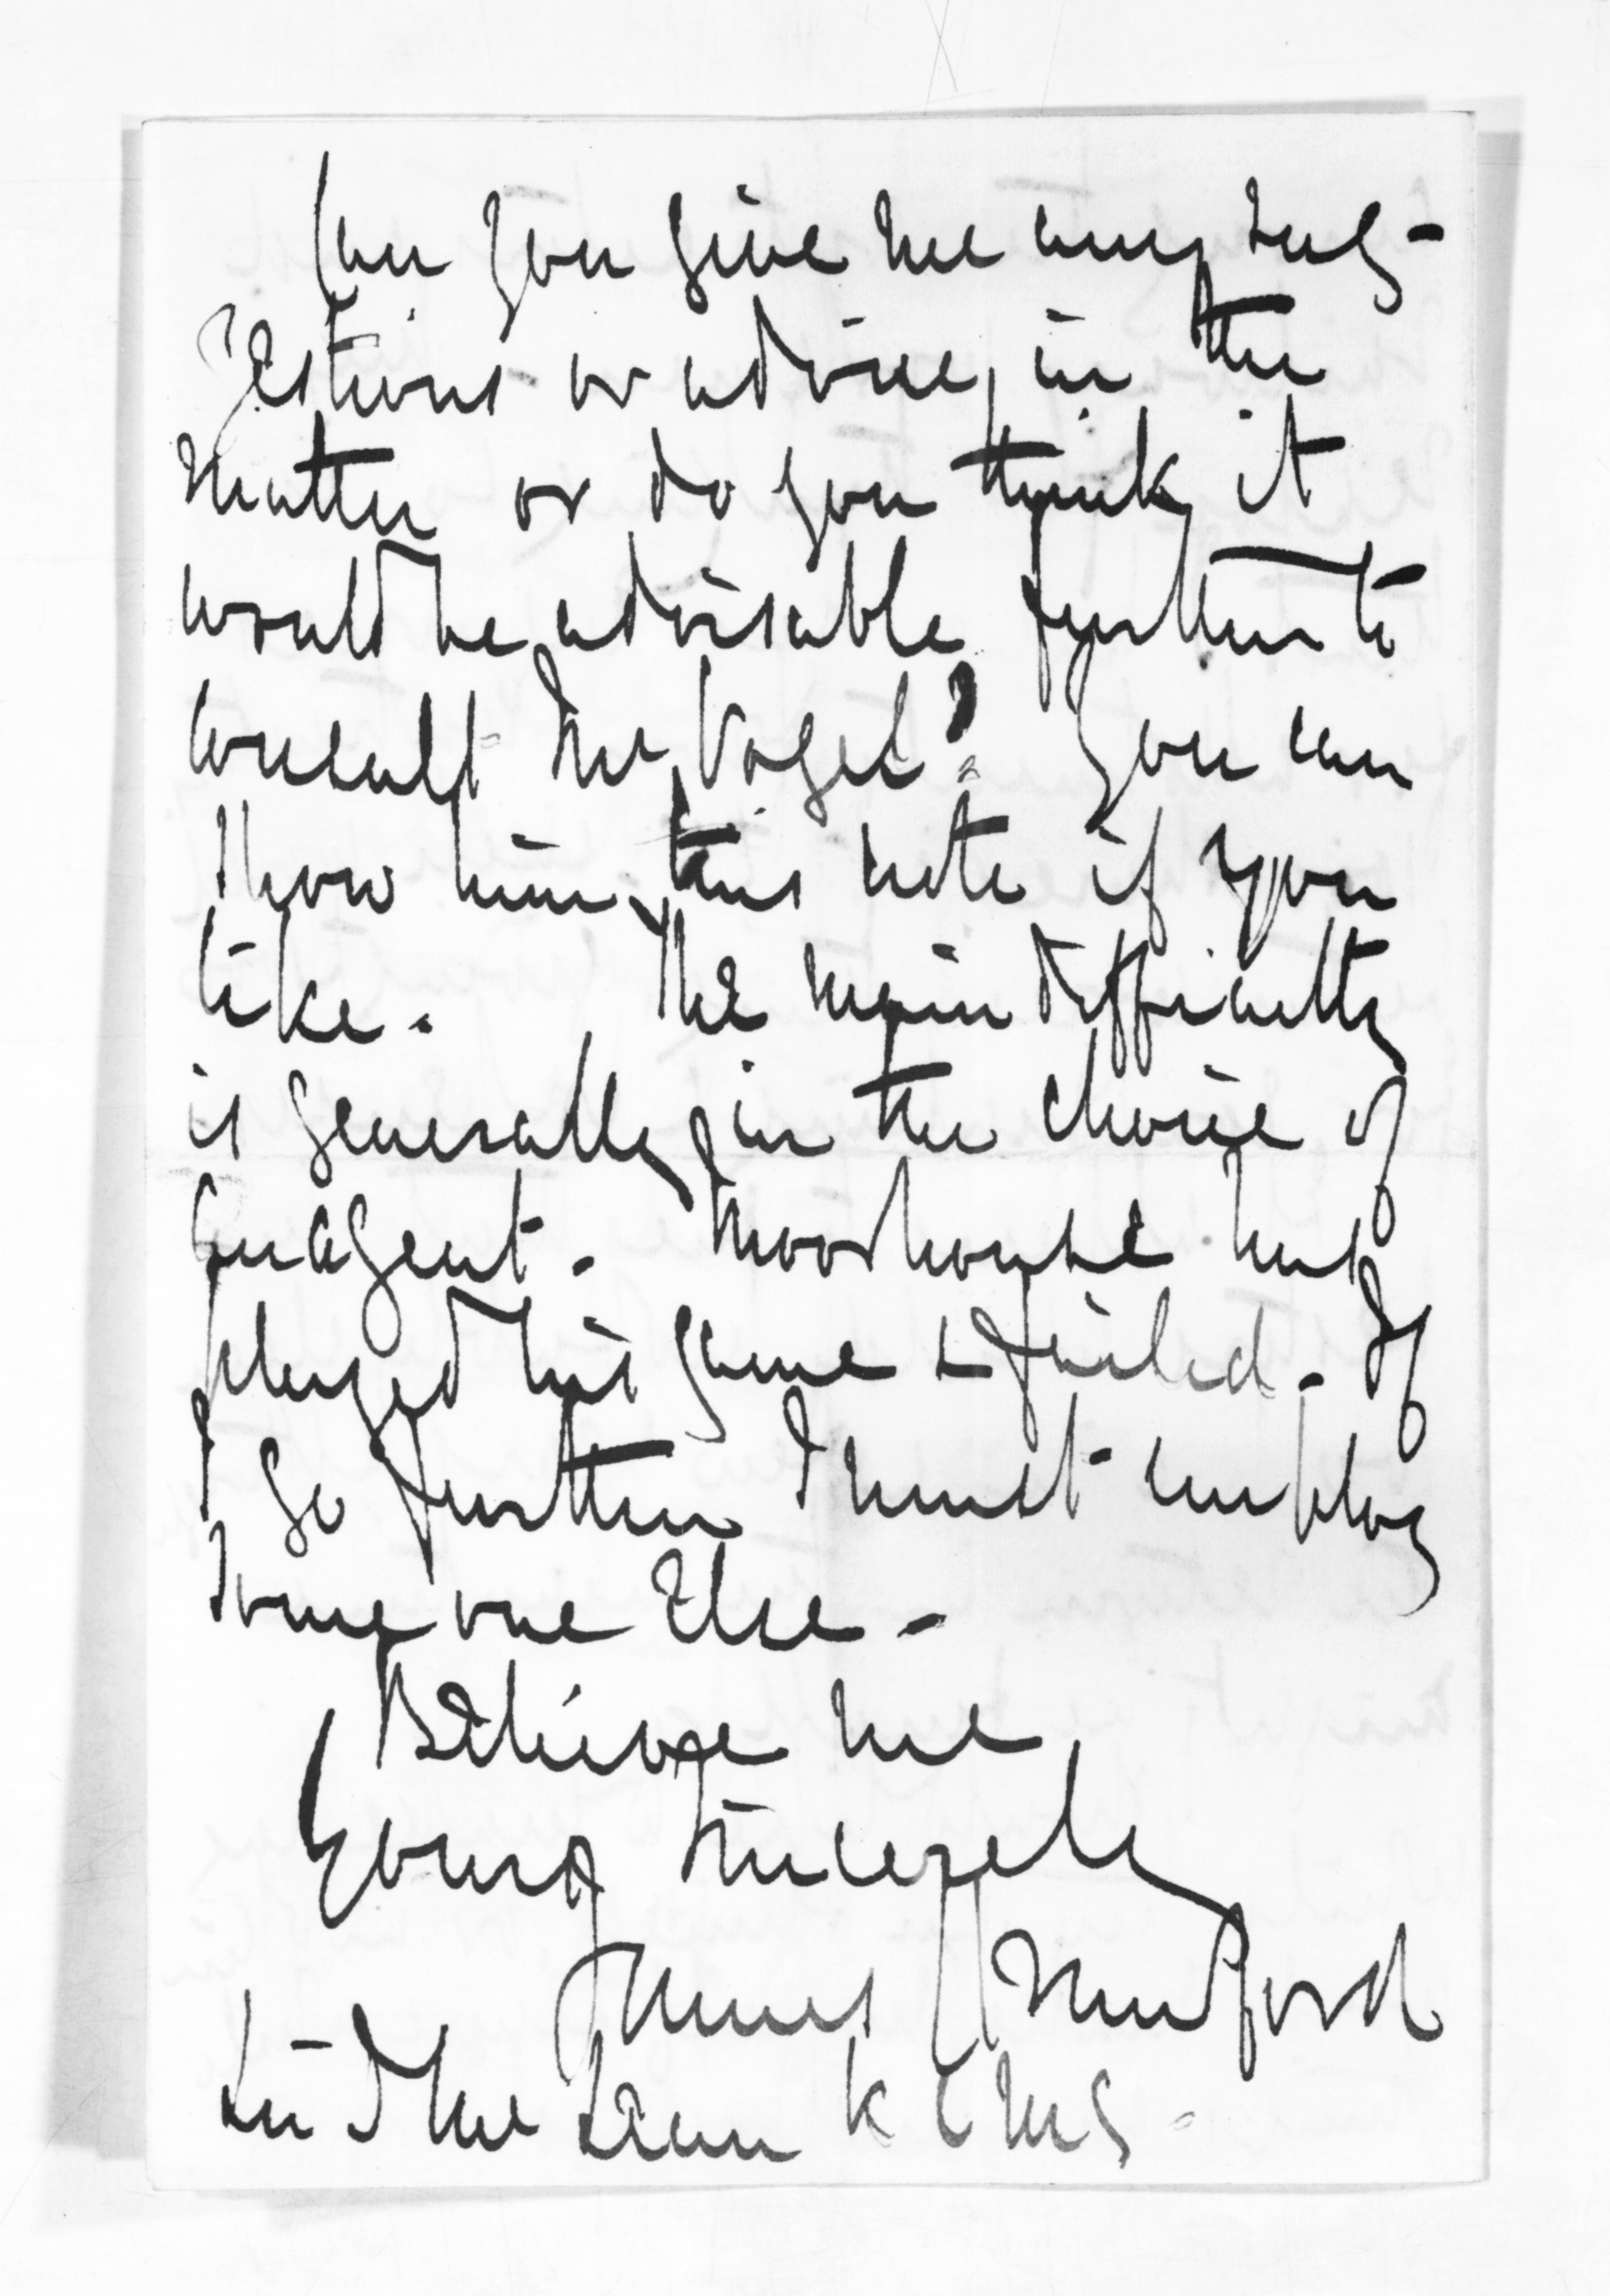 Can you give me any sug-
gestions or advice, in the
matter or do you think it
would be advisable further to
consult Mr Vogel? You can
show him this note if you
like. The main difficulty
is generally in the choice of
an agent. Moorhouse has
played his game & failed. If
I go further I must employ
some one else.
Believe me
Yours sincerely
James Mudford
Sir D McLean KCMG.